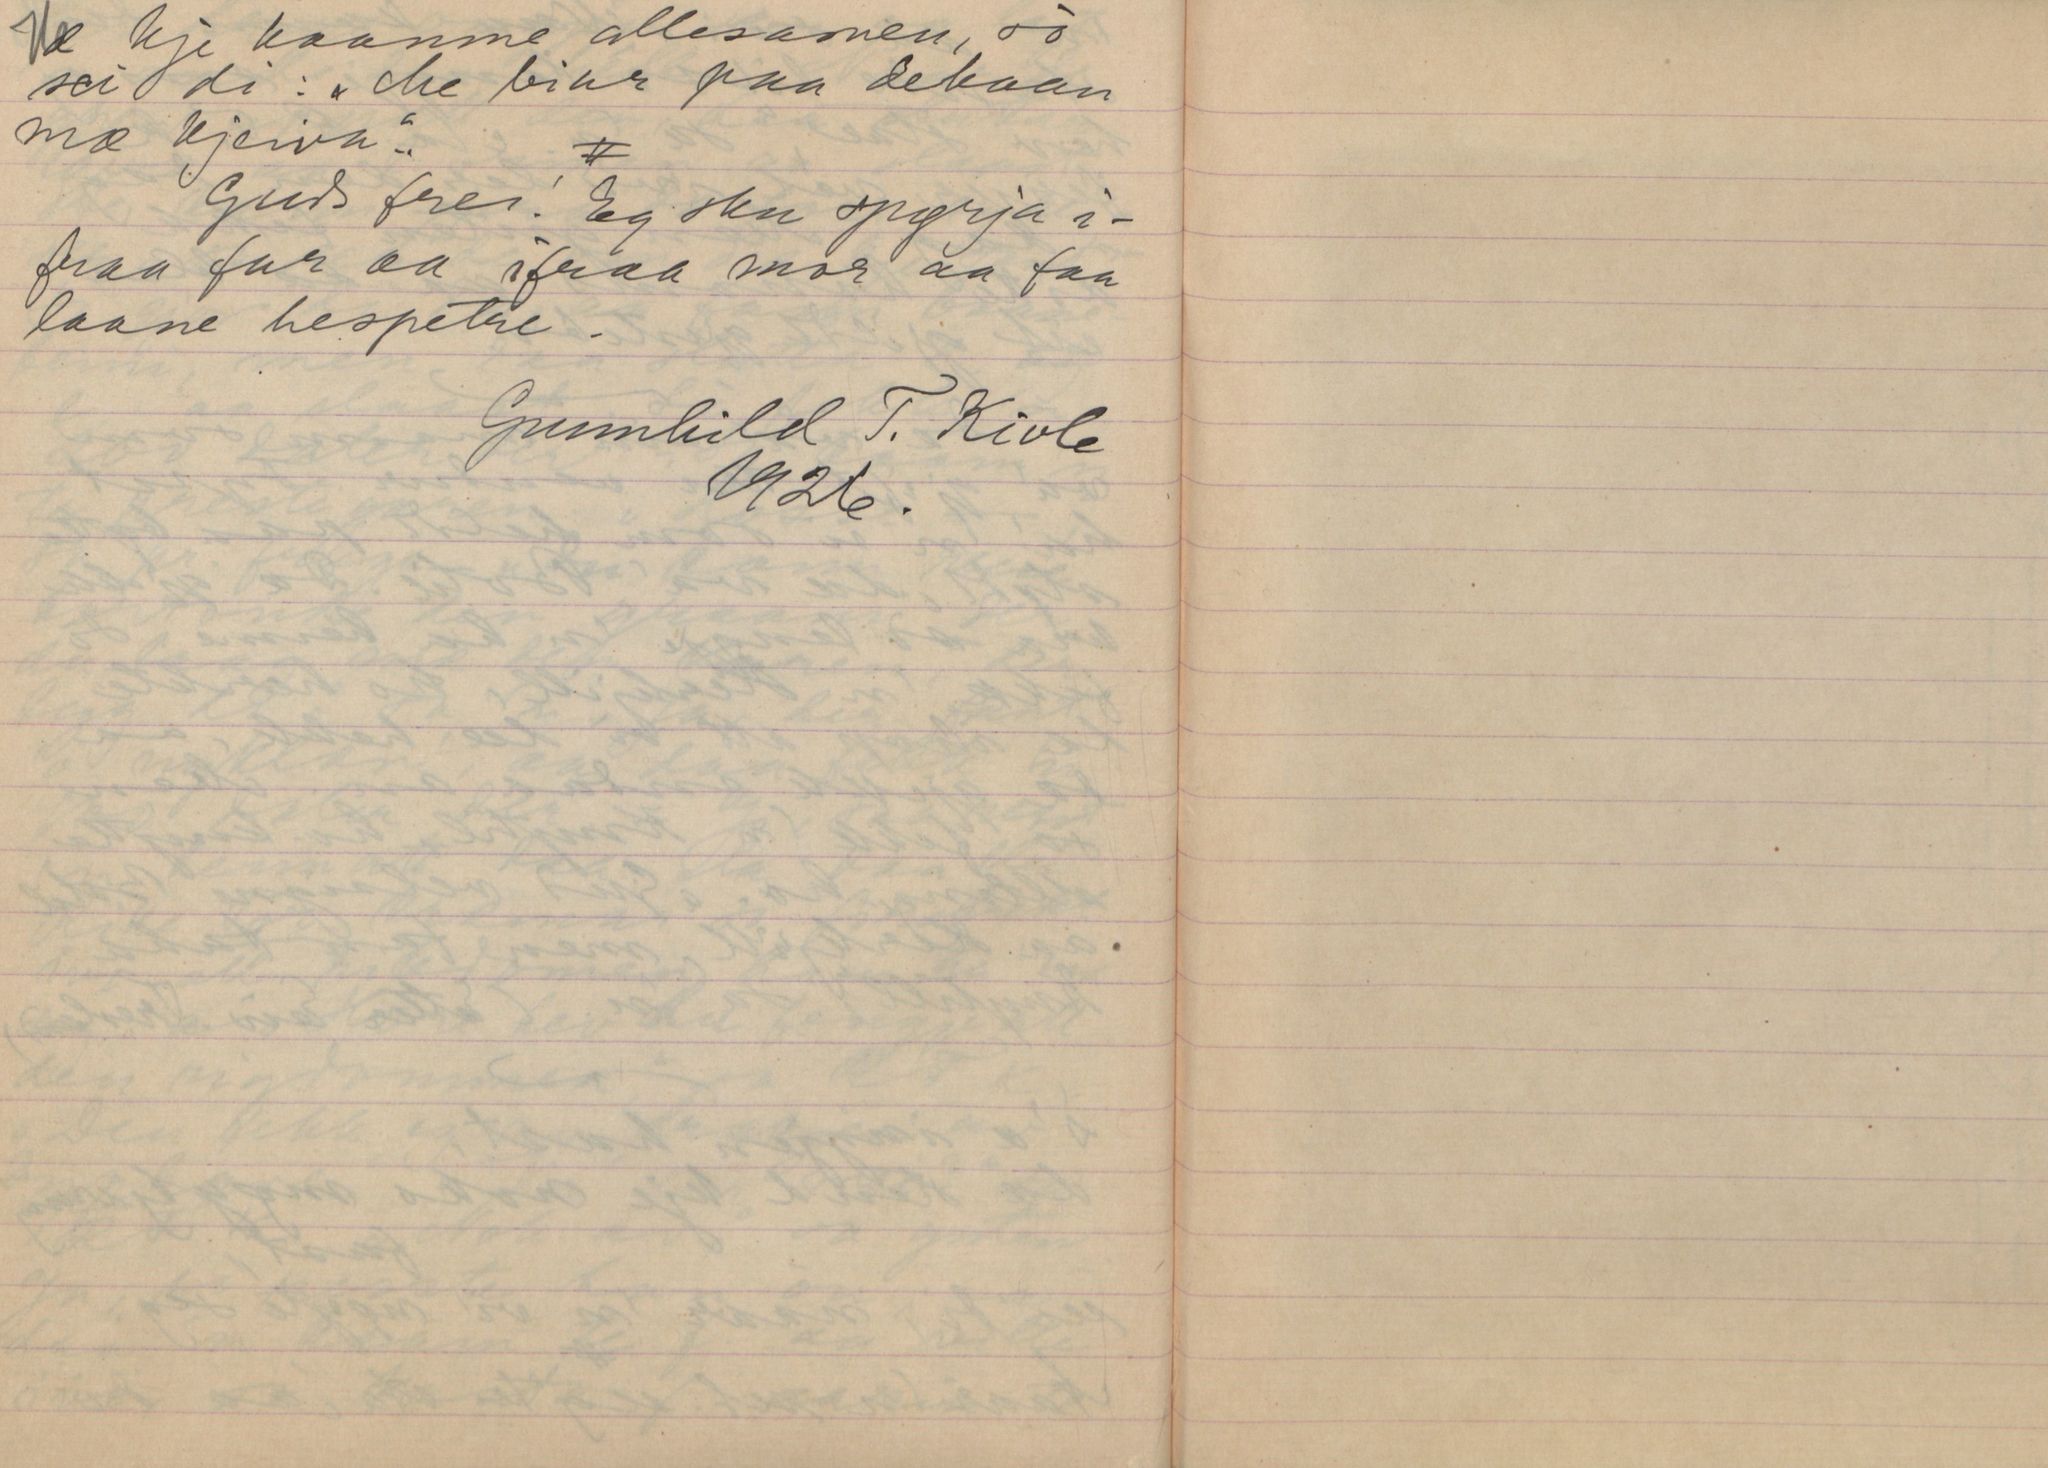 Væ kje kaanme allesamen, so
sei di: "che biur paa dekaan
mæ kjeiva".
Guds frei! Eg sku spyrja i-
fraa far aa ifraa mor aa faa
laane hespetre.
Gunnhild T. Kivle
1926.